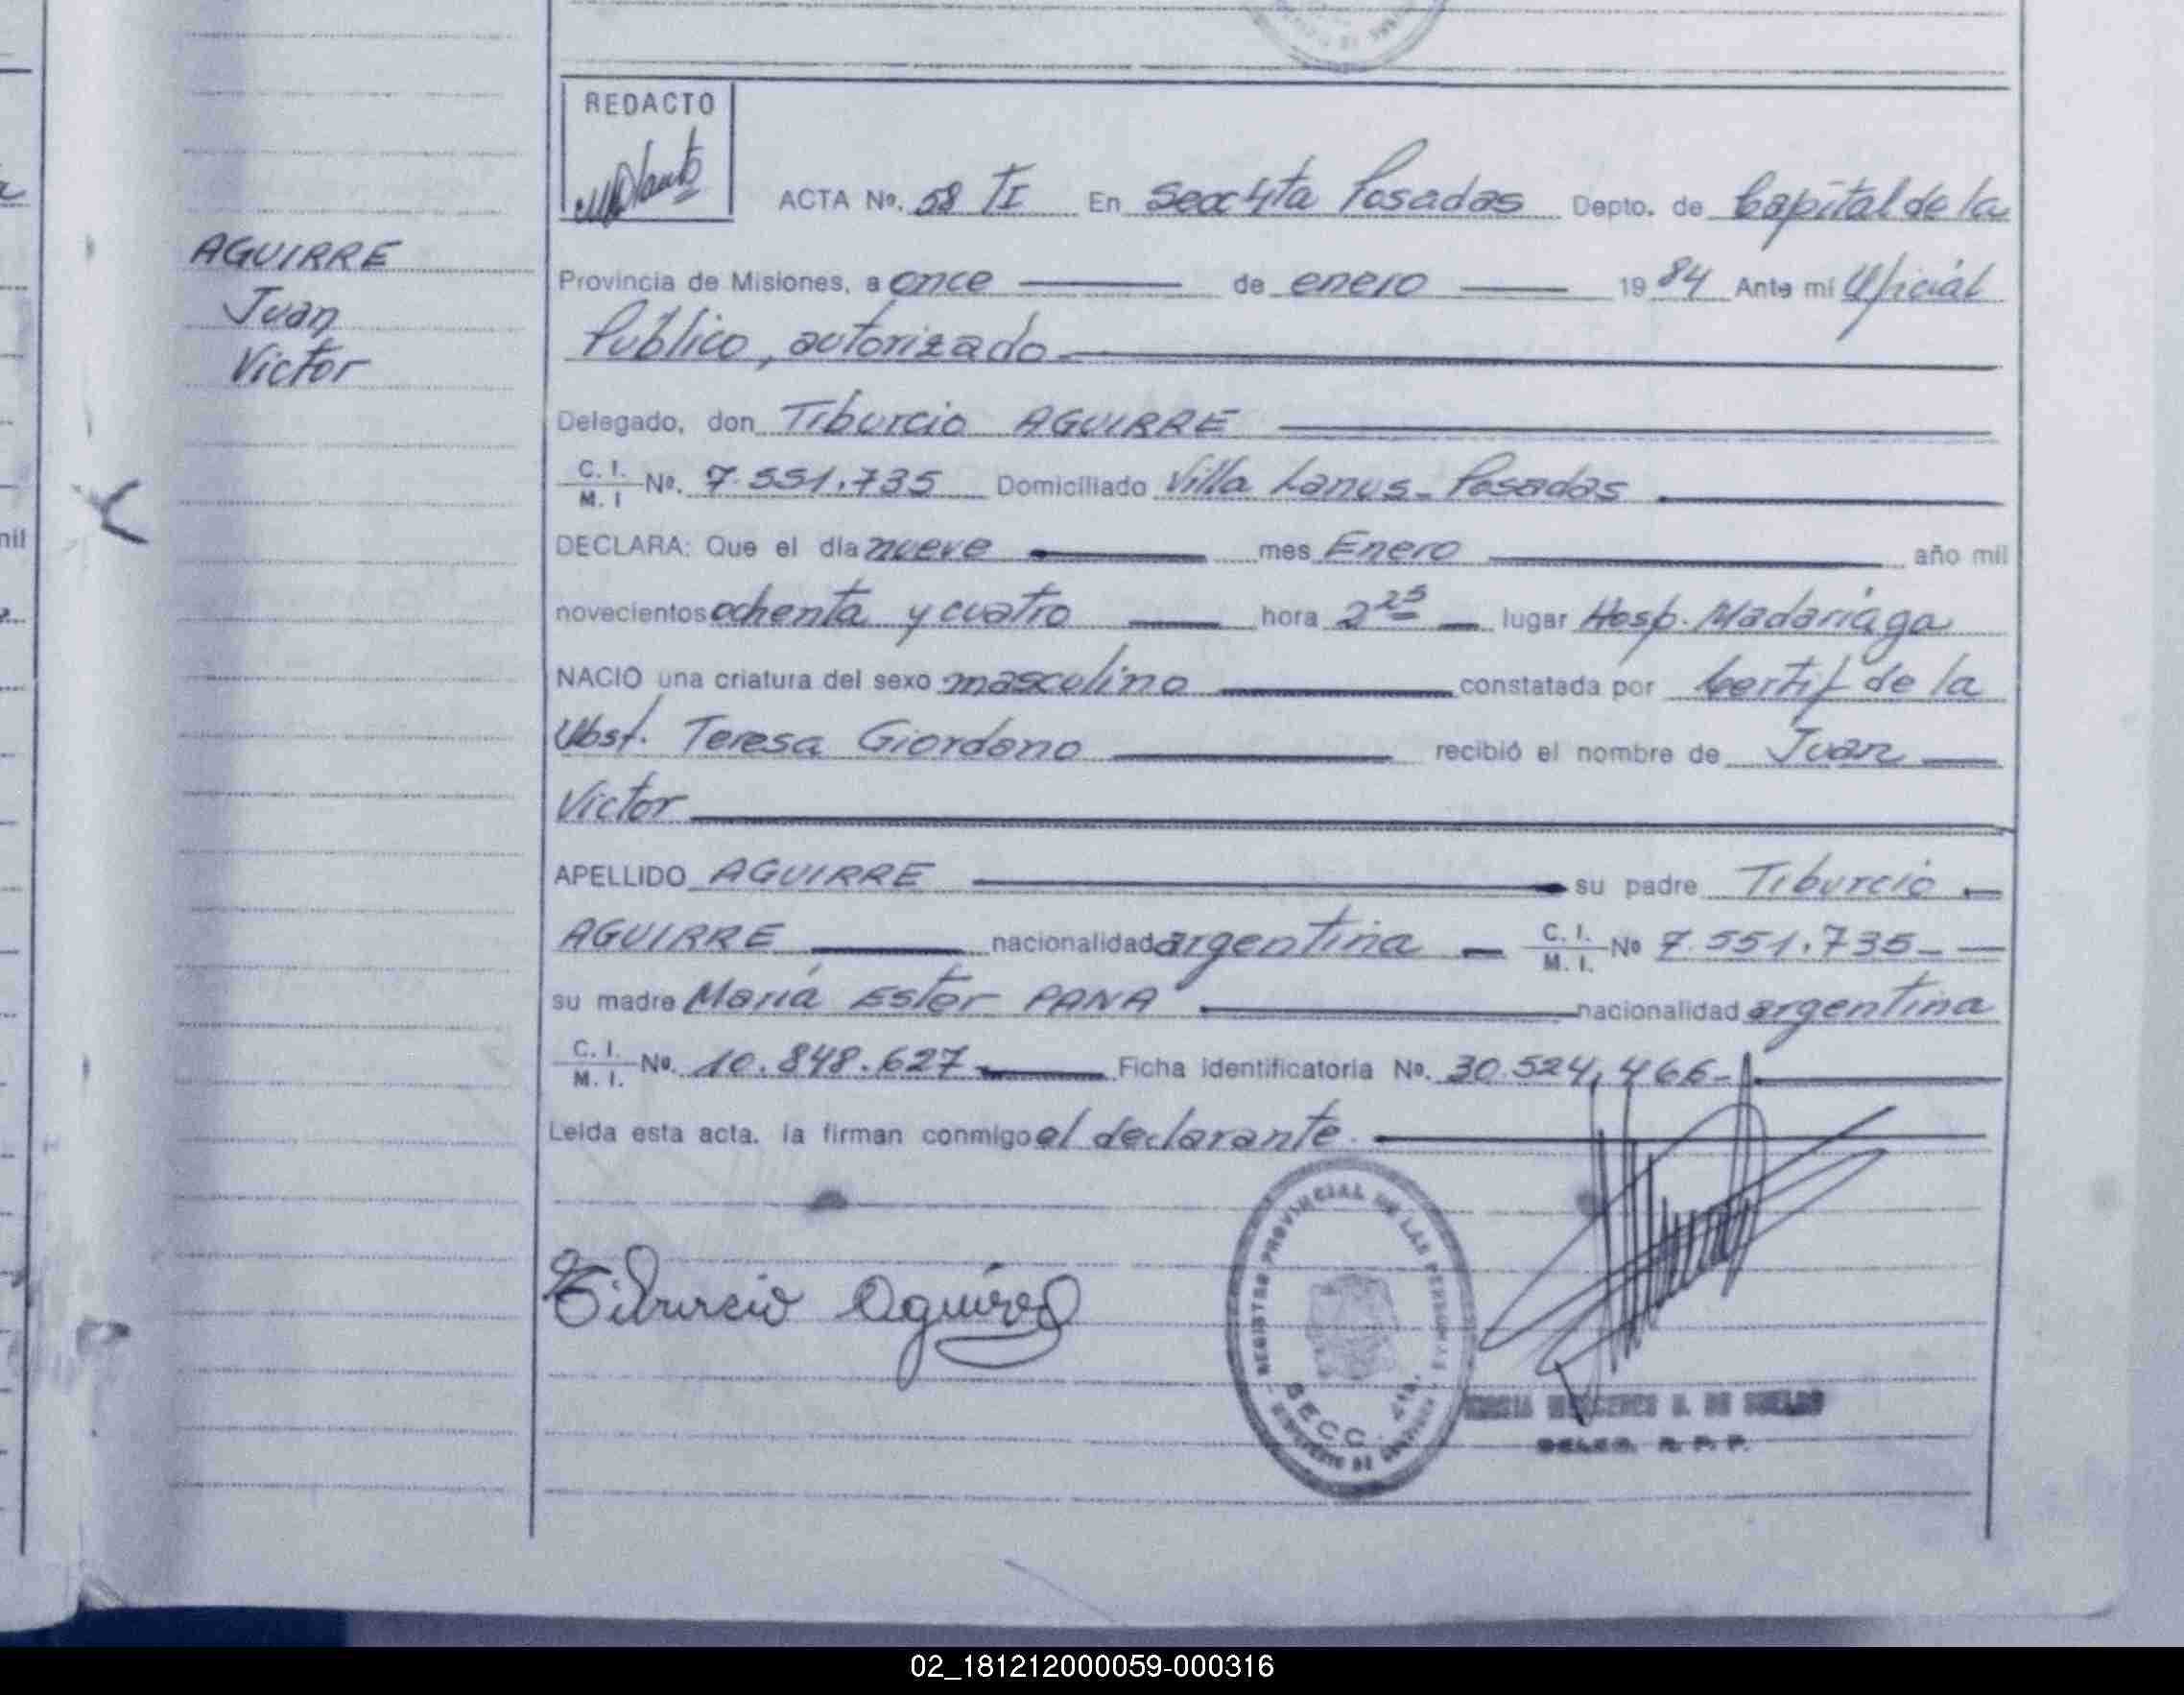 REDACTO
ACTA Nº. 58 TI En Secc 4ta Posadas Depto. de Capital de la
AGUIRRE
Juan
Victor
Provincia de Misiones, a once de enero 1984 Ante mi Oficial
Público, autorizado
Delegado, don Tiburcio AGUIRRE
C. I. M. I Nº. 7.551.735 Domiciliado Villa Lanus - Posadas
DECLARA: Que el día nueve mes Enero año mil
novecientos ochenta y cuatro hora 2 25 lugar Hosp. Madariaga
NACIO una criatura del sexo masculino constatada por Certif de la
Obst. Teresa Giordano recibió el nombre de Juan
Victor
APELLIDO AGUIRRE su padre Tiburcio
AGUIRRE nacionalidad argentina C. I. M. I. Nº 7.551.735-
su madre María Ester PANA nacionalidad argentina
C. I. M. I. Nº. 10.848.627 Ficha identificatoria Nº. 30.524,466-
Leida esta acta. la firman conmigo el declarante.
Tiburcio Aguirre
REGISTRO PROVINCIAL DE LAS PERSONAS
SECC. 4ta.
DE SUELDO
DELEG. R. P. P.
nil
02_181212000059-000316